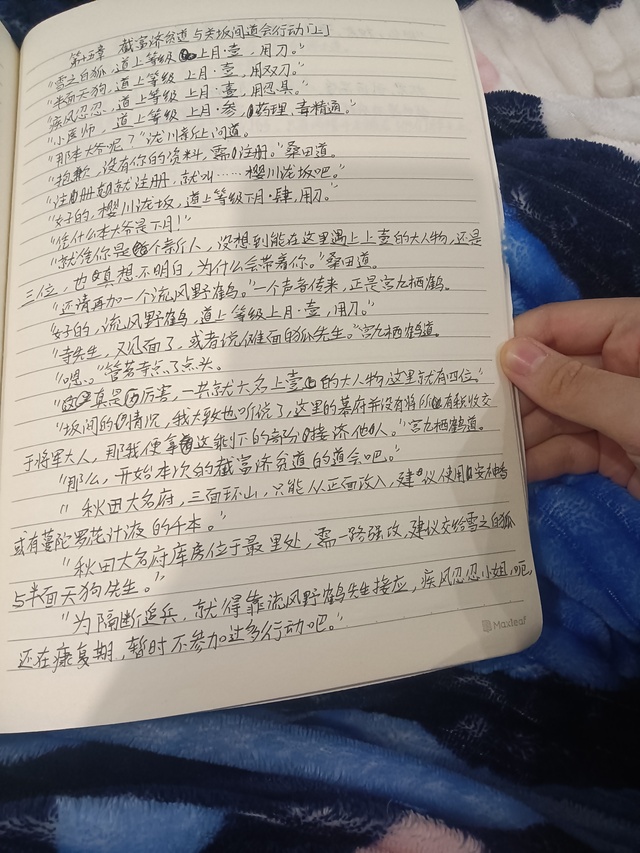 第十五章 截富济贫道与类坂间道会行动「上」
"雪之白狐，道上等级 上月·壹，用刀。"
"半面天狗，道上等级 上月·壹，用双刀。"
"疾风忍忍，道上等级 上月·壹，用忍具。"
"小医师，道上等级 上月·参，药理，毒精通。"
"那本大爷呢？"泷川新上问道。
"抱歉，没有你的资料，需注册。"桑田道。
"注册就注册，就叫……樱川泷坂吧。"
"好的，樱川泷坂，道上等级下月·肆，用刀。"
"凭什么本大爷是下月！"
"就凭你是个新人，没想到能在这里遇上上壹的大人物，还是
三位，也真想不明白，为什么会带着你。"桑田道。
"还请再加一个流风野鹤。"一个声音传来，正是宫九栖鹤。
"好的，流风野鹤，道上等级上月·壹，用刀。"
"寺先生，又见面了，或者说傩面白狐先生。"宫九栖鹤道。
"嗯。"管茗寺点了点头。
"真是厉害，一共就六名上壹的大人物，这里就有四位。"
"坂间的情况，我大致也听说了，这里的幕府并没有将所有税收交
于将军大人，那我便拿这剩下的部分接济他人。"宫九栖鹤道。
"那么，开始本次的截富济贫道的道会吧。"
"秋田大名府，三面环山，只能从正面攻入，建议使用安神香
或有蔓陀罗花汁液的千本。"
"秋田大名府库房位于最里处，需一路强攻，建议交给雪之白狐
与半面天狗先生。"
"为隔断追兵，就得靠流风野鹤先生接应，疾风忍忍小姐，呃，
还在康复期，暂时不参加过多行动吧。"
Maxleaf